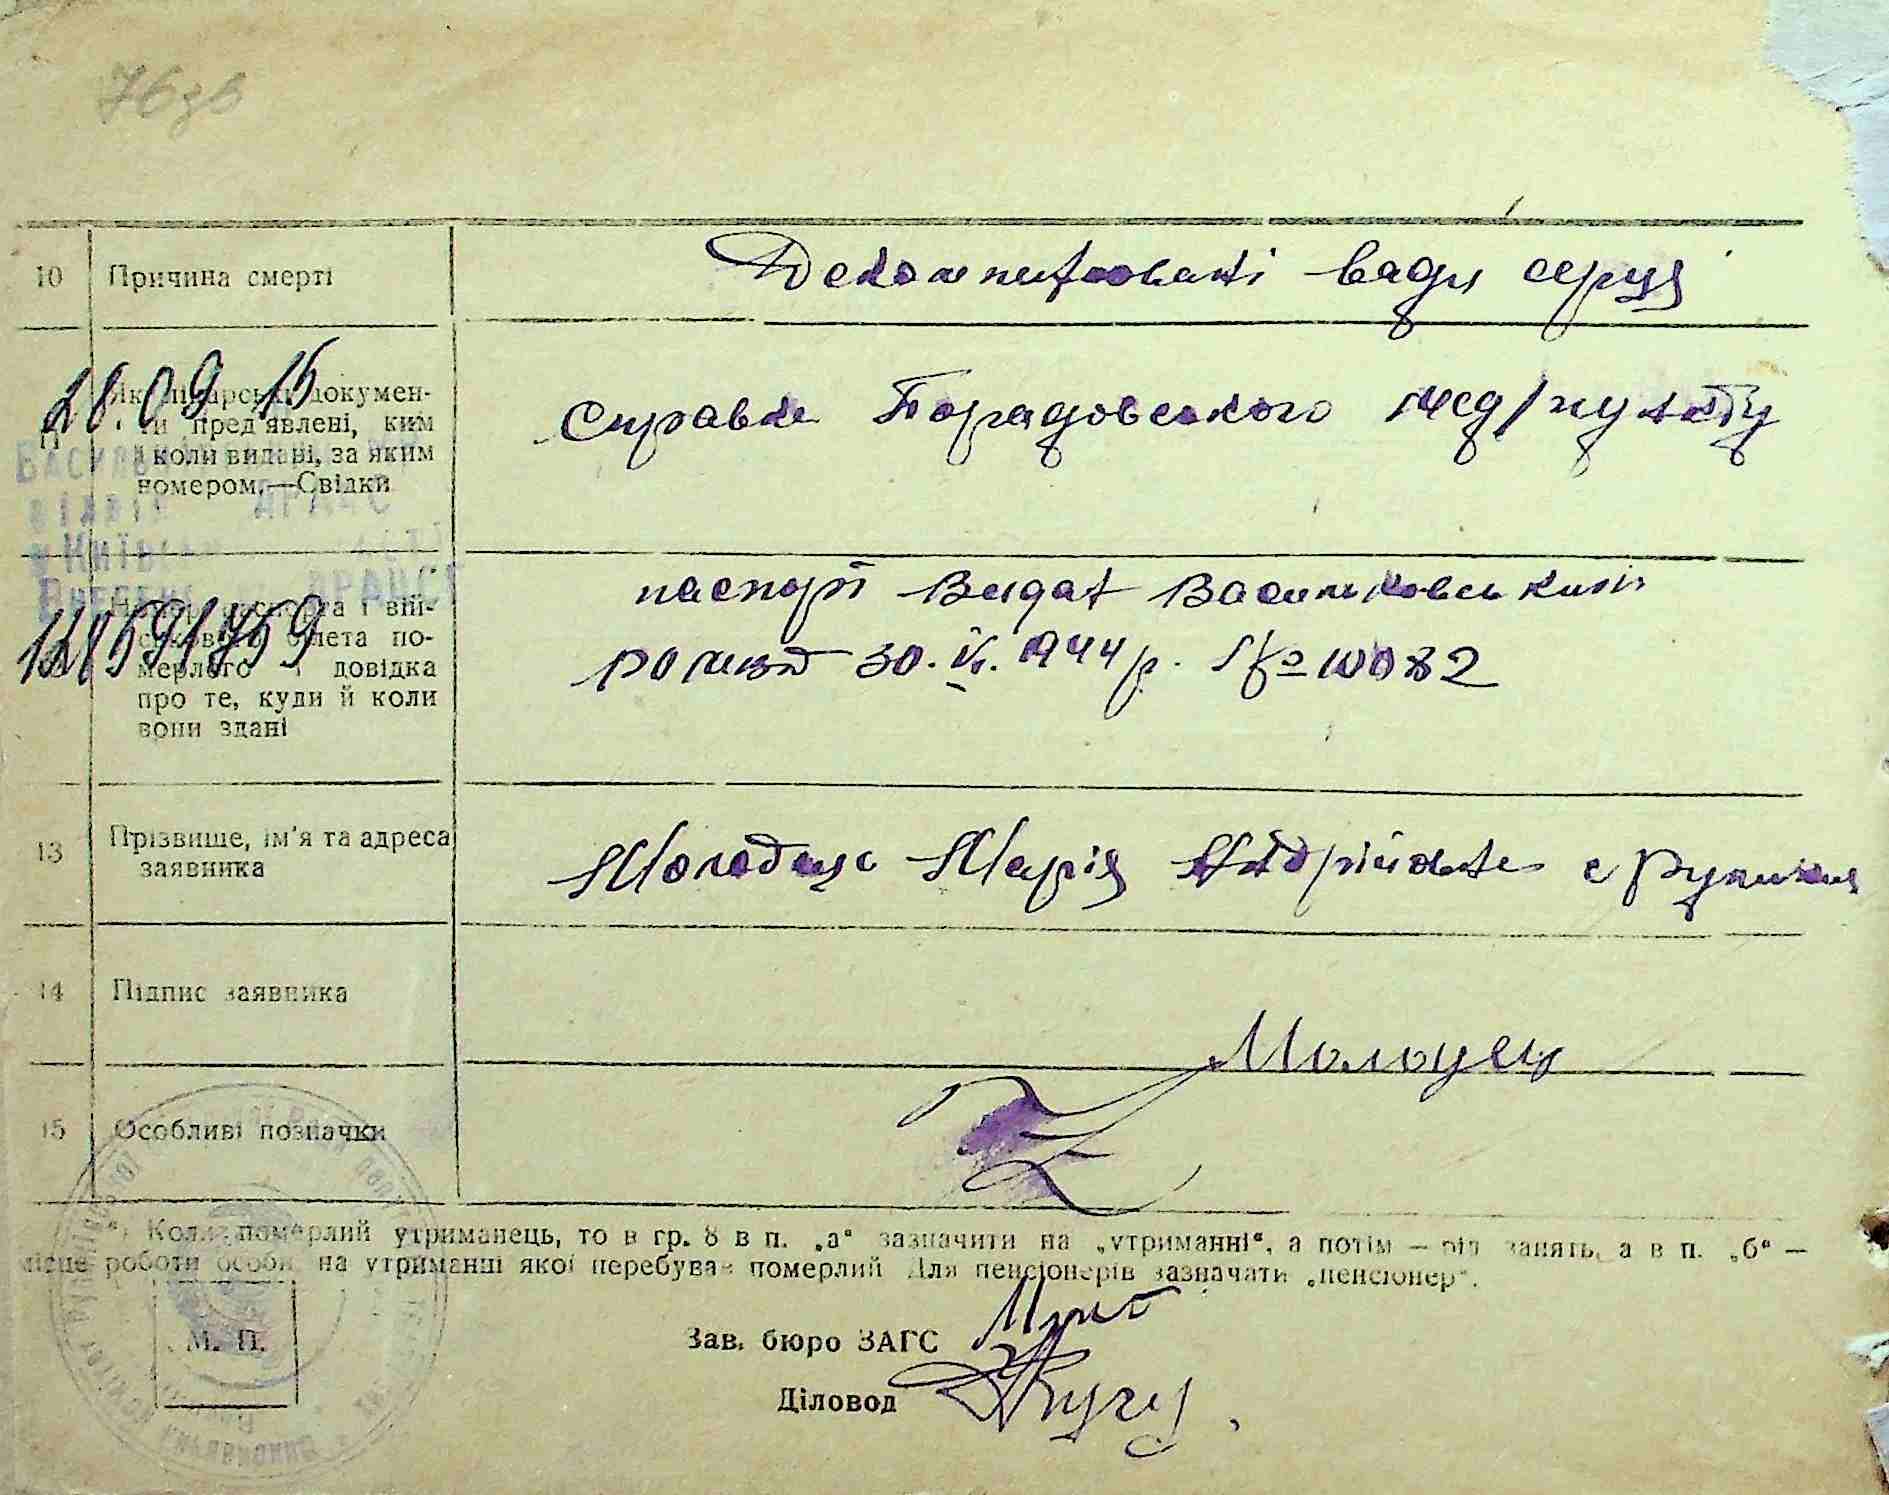 10 Причина смерті
Декомпенсовані вади серця
28.09.15
Які лікарські докумен-
ти пред'явлені, ким
і коли видані, за яким
номером.—Свідки
Справка Порадовського мед/пункту
Номер паспорта і вій-
ськового білета по-
мерлого і довідка
про те, куди й коли
вони здані
паспорт Видан Васильковським
РОМВД 30.VI.1944 р. № 10082
13 Прізвище, ім'я та адреса
заявника
Молодець Марія Андріївна с
14 Підпис заявника
Молодець
15 Особливі позначки
*) Коли померлий утриманець, то в гр. 8 в п. „а“ зазначити на „утриманні“, а потім — рід занять, а в п. „б“ —
місце роботи особи, на утриманні якої перебував померлий Для пенсіонерів зазначати „пенсіонер“.
М. П.
Зав. бюро ЗАГС
Діловод